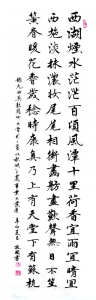 西湖煙水茫茫百頃風潭十里荷香宜雨宜晴宜
西施淡抹濃妝尾尾相銜畫舫盡歡聲無日不笙
簧春暖花香歲稔時康真乃上有天堂下有蘇杭